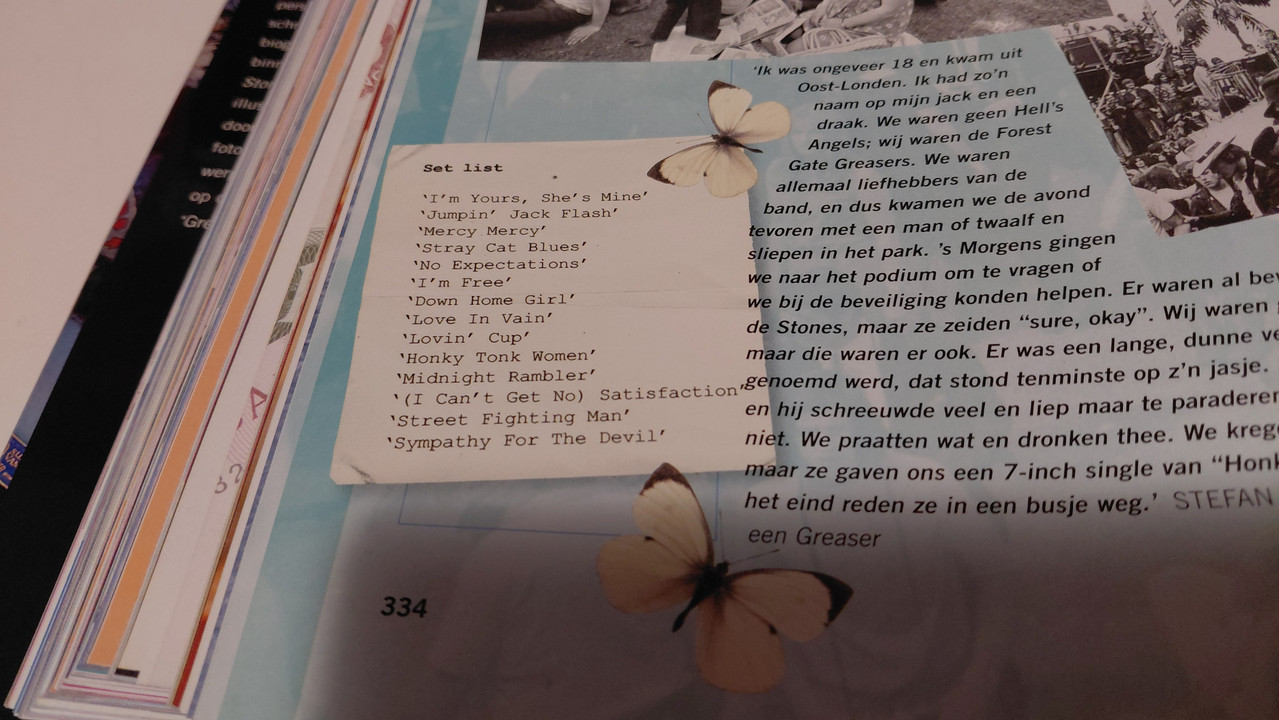 Set list
'I'm Yours, She's Mine'
'Jumpin' Jack Flash'
'Mercy Mercy'
'Stray Cat Blues'
'No Expectations'
'I'm Free'
'Down Home Girl'
'Love In Vain'
'Lovin' Cup'
'Honky Tonk Women'
'Midnight Rambler'
'(I Can't Get No) Satisfaction'
'Street Fighting Man'
'Sympathy For The Devil'
334
'Ik was ongeveer 18 en kwam uit
Oost-Londen. Ik had zo'n
naam op mijn jack en een
draak. We waren geen Hell's
Angels; wij waren de Forest
Gate Greasers. We waren
allemaal liefhebbers van de
band, en dus kwamen we de avond
tevoren met een man of twaalf en
sliepen in het park. 's Morgens gingen
we naar het podium om te vragen of
we bij de beveiliging konden helpen. Er waren al
de Stones, maar ze zeiden "sure, okay". Wij waren
maar die waren er ook. Er was een lange, dunne
genoemd werd, dat stond tenminste op z'n jasje.
en hij schreeuwde veel en liep maar te
niet. We praatten wat en dronken thee. We
maar ze gaven ons een 7-inch single van
het eind reden ze in een busje weg.' STEFAN
een Greaser